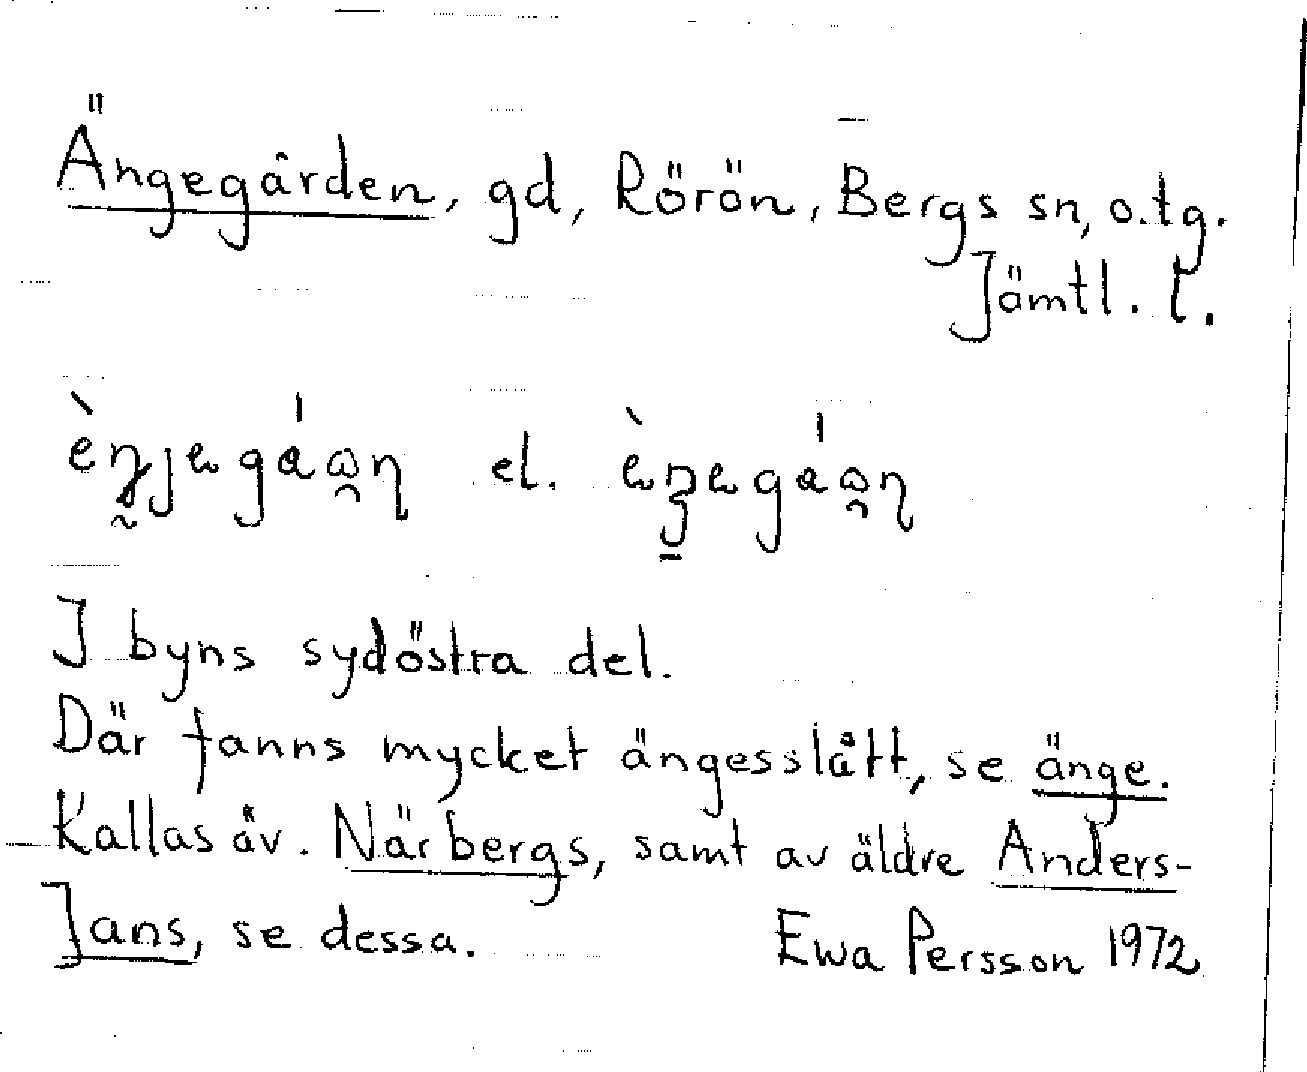 Ängegården, gd, Rörön, Bergs sn, o.tg.
Jämtl. l.
el.
I byns sydöstra del.
Där fanns mycket ängesslått, se änge.
Kallas äv. Närbergs, samt av äldre Anders-
Jans, se dessa. Ewa Persson 1972